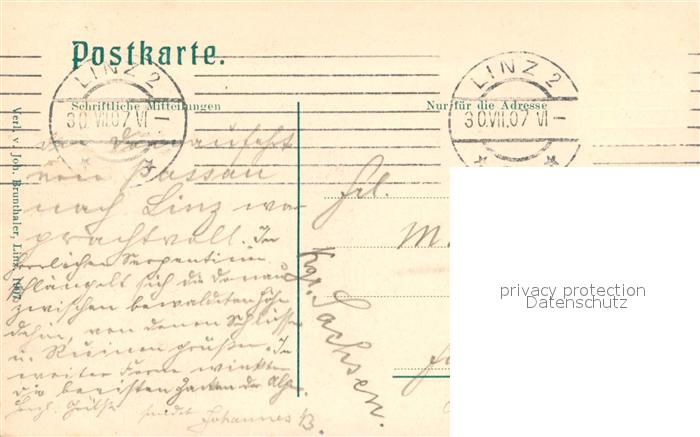 Postkarte.
LINZ 2
30.VII.07 VI
LINZ 2
30.VII.07 VI
Schriftliche Mitteilungen
Nur für die Adresse
Verl. v. Joh. Brunthaler, Linz. 1907
Donaufahrt
von Passau
nach Linz war
prachtvoll. In
herrlichen Serpentinen
schlängelt sich die Donau
zwischen bewaldeten Höhn
dahin, von denen Schlösser
u. Ruinen grüßen. In
weiter Ferne winkten
die bereisten Zacken der Alpen.
Herzl. Grüße sendet Johannes B.
Frl.
M.
Kgr. Sachsen.
privacy protection
Datenschutz